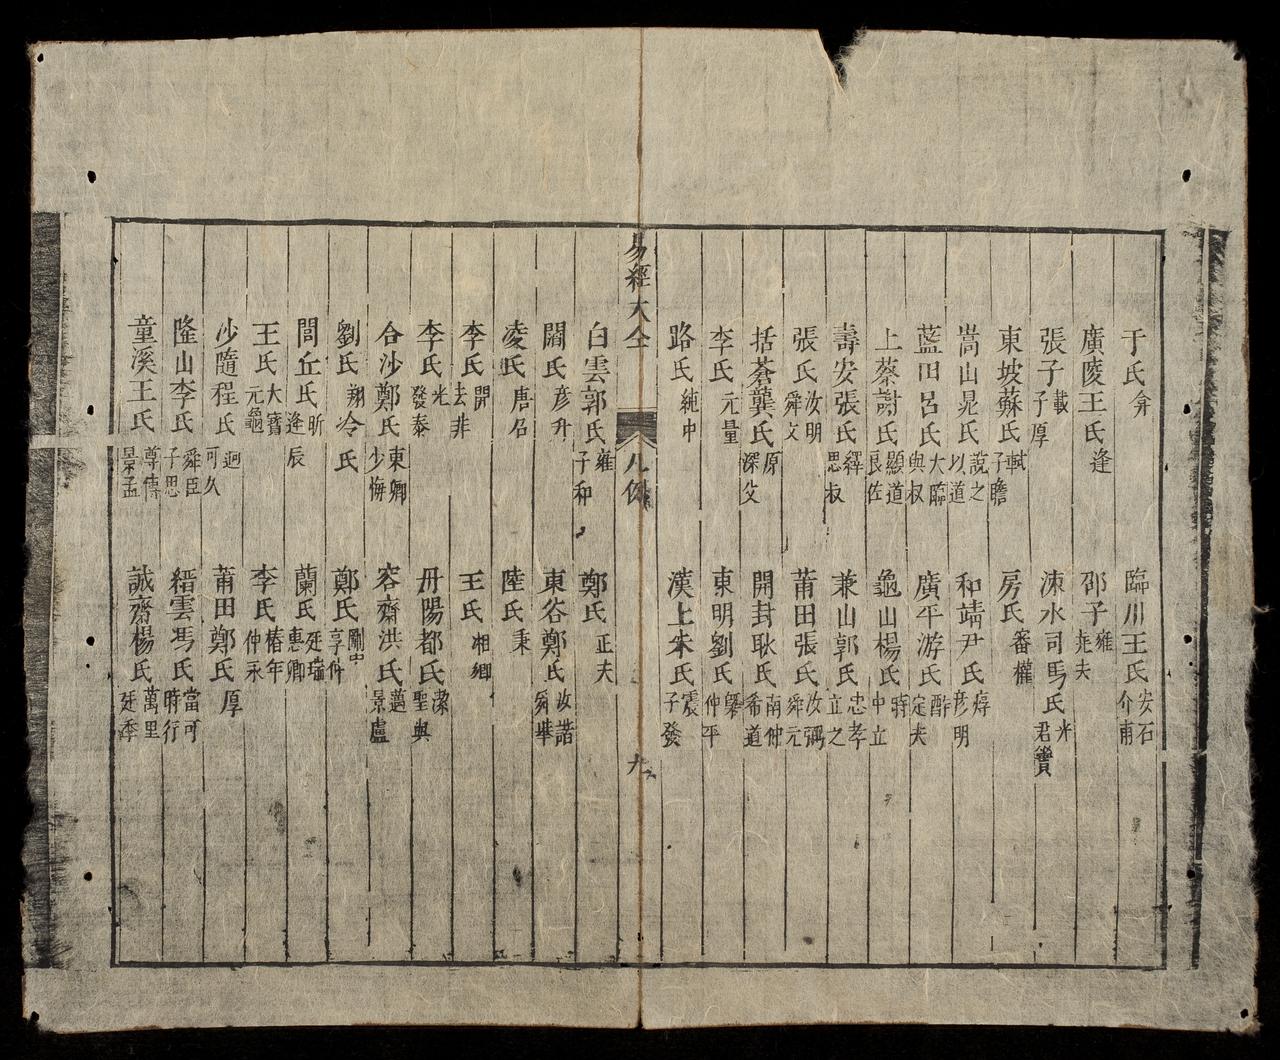 于氏弇　臨川王氏安石介甫
廣陵王氏逢　邵子雍尭夫
張子載子厚　涑水司馬氏光君實
東坡蘇氏軾子瞻　房氏審權
嵩山晁氏說之以道　和靖尹氏焞彦明
藍田呂氏大臨與叔　廣平游氏酢定夫
上蔡謝氏顯道良佐　龜山楊氏時中立
壽安張氏繹思叔　兼山郭氏忠孝立之
張氏汝明舜文　莆田張氏汝弼舜元
括蒼龔氏原深父　開封耿氏南仲希道
李氏元量　東明劉氏槩仲平
路氏純中　漢上朱氏震子發
易經大全　凡例　九
白雲郭氏雍子和　鄭氏正夫
閻氏彦升　東谷鄭氏汝諧舜舉
凌氏唐佐　陸氏秉
李氏開去非　王氏湘卿
李氏光發泰　丹陽都氏潔聖與
合沙鄭氏東卿少梅　容齋洪氏邁景盧
劉氏翔　冷氏　鄭氏剛中亨仲
閭丘氏昕逢辰　蘭氏廷瑞惠卿
王氏大寶元龜　李氏椿年仲永
沙隨程氏迥可久　莆田鄭氏厚
隆山李氏舜臣子思　縉雲馮氏當可時行
童溪王氏尊傳景孟　誠齋楊氏萬里廷秀